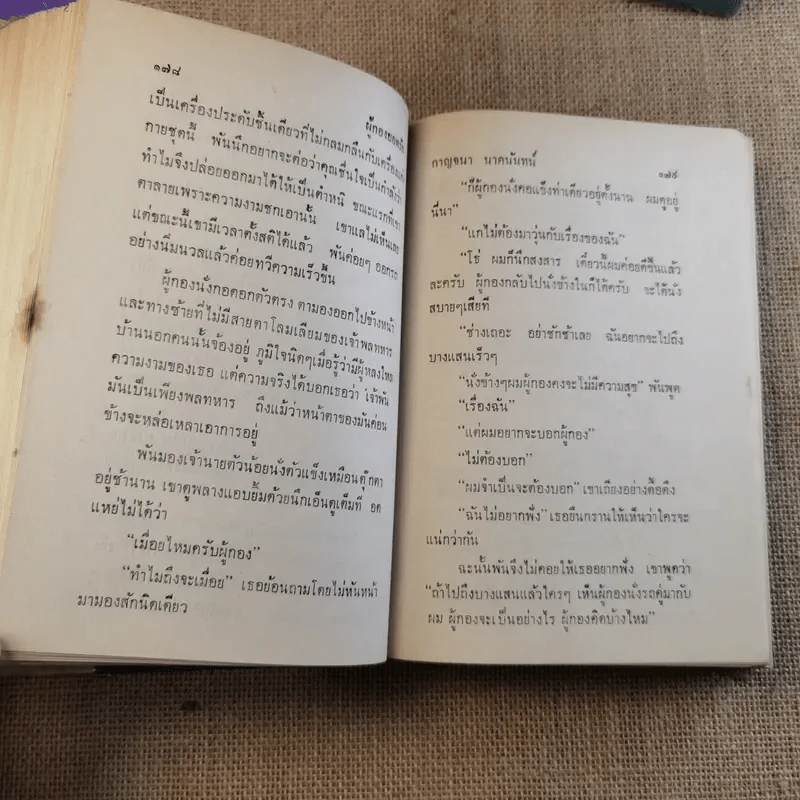 ๑๗๘
ผู้กอง
เป็นเครื่องประดับชิ้นเดียวที่ไม่กลมกลืนกับเครื่อง
กายชุดนี้ พันนึกอยากจะต่อว่าคุณชื่นใจเป็นกำลังว่า
ทำไมจึงปล่อยออกมาได้ให้เป็นตำหนิ ขณะแรกที่เขา
ตาลายเพราะความงามชกเอานั้น เขาแลไม่เห็นเลย
แต่ขณะนี้เขามีเวลาตั้งสติได้แล้ว พันค่อยๆ ออกรถ
อย่างนิ่มนวลแล้วค่อยทวีความเร็วขึ้น
ผู้กองนั่งกอดอกตัวตรง ตามองออกไปข้างหน้า
และทางซ้ายที่ไม่มีสายตาโลมเลียมของเจ้าพลทหาร
บ้านนอกคนนั้นจ้องอยู่ ภูมิใจนิดๆเมื่อรู้ว่ามีผู้หลงใหล
ความงามของเธอ แต่ความจริงได้บอกเธอว่า เจ้าพัน
มันเป็นเพียงพลทหาร ถึงแม้ว่าหน้าตาของมันค่อน
ข้างจะหล่อเหลาเอาการอยู่
พันมองเจ้านายตัวน้อยนั่งตัวแข็งเหมือนตุ๊กตา
อยู่ช้านาน เขาดูพลางแอบยิ้มด้วยนึกเอ็นดูเต็มที อด
แหย่ไม่ได้ว่า
“เมื่อยไหมครับผู้กอง”
“ทำไมถึงจะเมื่อย” เธอย้อนถามโดยไม่หันหน้า
มามองสักนิดเดียว
กาญจนา นาคนันทน์
๑๗๙
“ก็ผู้กองนั่งคอแข็งท่าเดียวอยู่ตั้งนาน ผมดูอยู่
นี่นา”
“แกไม่ต้องมาวุ่นกับเรื่องของฉัน”
“โธ่ ผมก็นึกสงสาร เดี๋ยวนี้ผมค่อยดีขึ้นแล้ว
ละครับ ผู้กองกลับไปนั่งข้างในก็ได้ครับ จะได้นั่ง
สบายๆเสียที
“ช่างเถอะ อย่าชักช้าเลย ฉันอยากจะไปถึง
บางแสนเร็วๆ
“นั่งข้างๆผมผู้กองคงจะไม่มีความสุข” พันพูด
“เรื่องฉัน”
“แต่ผมอยากจะบอกผู้กอง”
“ไม่ต้องบอก”
“ผมจำเป็นจะต้องบอก” เขาเถียงอย่างดื้อดึง
“ฉันไม่อยากฟัง” เธอยืนกรานให้เห็นว่าใครจะ
แน่กว่ากัน
ฉะนั้นพันจึงไม่คอยให้เธออยากฟัง เขาพูดว่า
“ถ้าไปถึงบางแสนแล้วใครๆ เห็นผู้กองนั่งรถคู่มากับ
ผม ผู้กองจะเป็นอย่างไร ผู้กองคิดบ้างไหม”